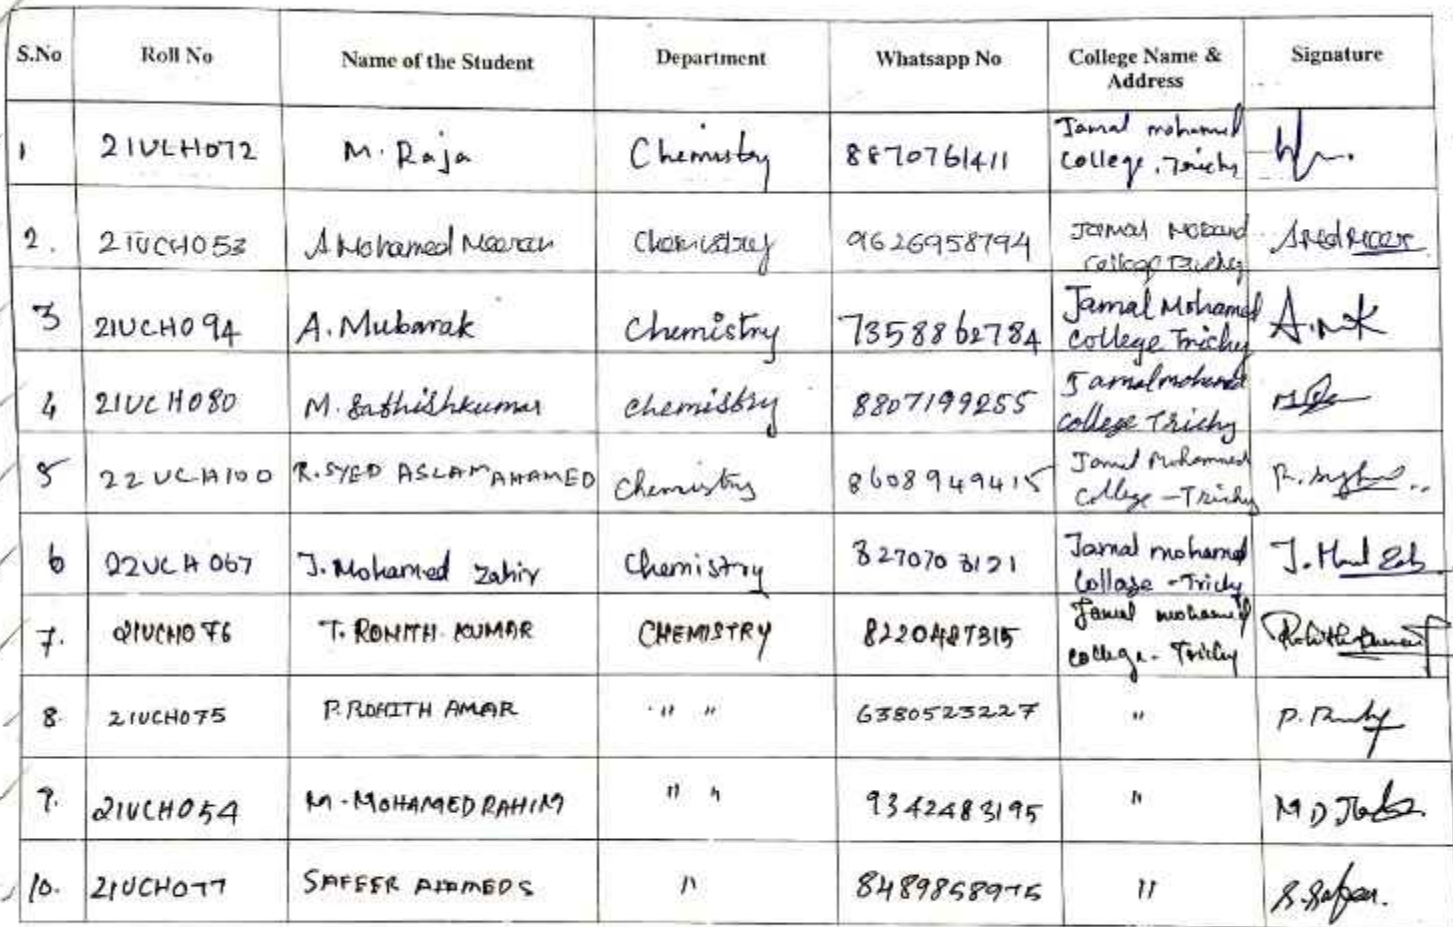 S.No Roll No Name of the Student Department Whatsapp No College Name & Address Signature
1 21UCH072 M. Raja Chemistry 8870761411 Jamal mohamed
college, Trichy
2. 21UCH053 A Mohamed Meeran Chemistry 9626958794 Jamal
College Trichy
3 21UCH094 A. Mubarak Chemistry 7358862784 Jamal Mohamed
College Trichy
4 21UCH080 M. Sathishkumar chemistry 8807199255 Jamal mohamed
college Trichy
5 22UCH100 R. SYED ASLAM AHAMED Chemistry 8608949415 Jamal Mohammed
College - Trichy
6 22UCH067 J. Mohamed Zahir Chemistry 827070 3121 Jamal mohamed
Collage - Trichy
7. 21UCH076 T. ROHITH KUMAR CHEMISTRY 8220487315 Jamal mohamed
college - Trichy
8. 21UCH075 P. ROHITH AMAR " " 6380523227 "
9. 21UCH054 M. MOHAMED RAHIM " " 9342483195 "
10. 21UCH077 SAFEER AHAMED S " 8489858975 " S. Safeer.